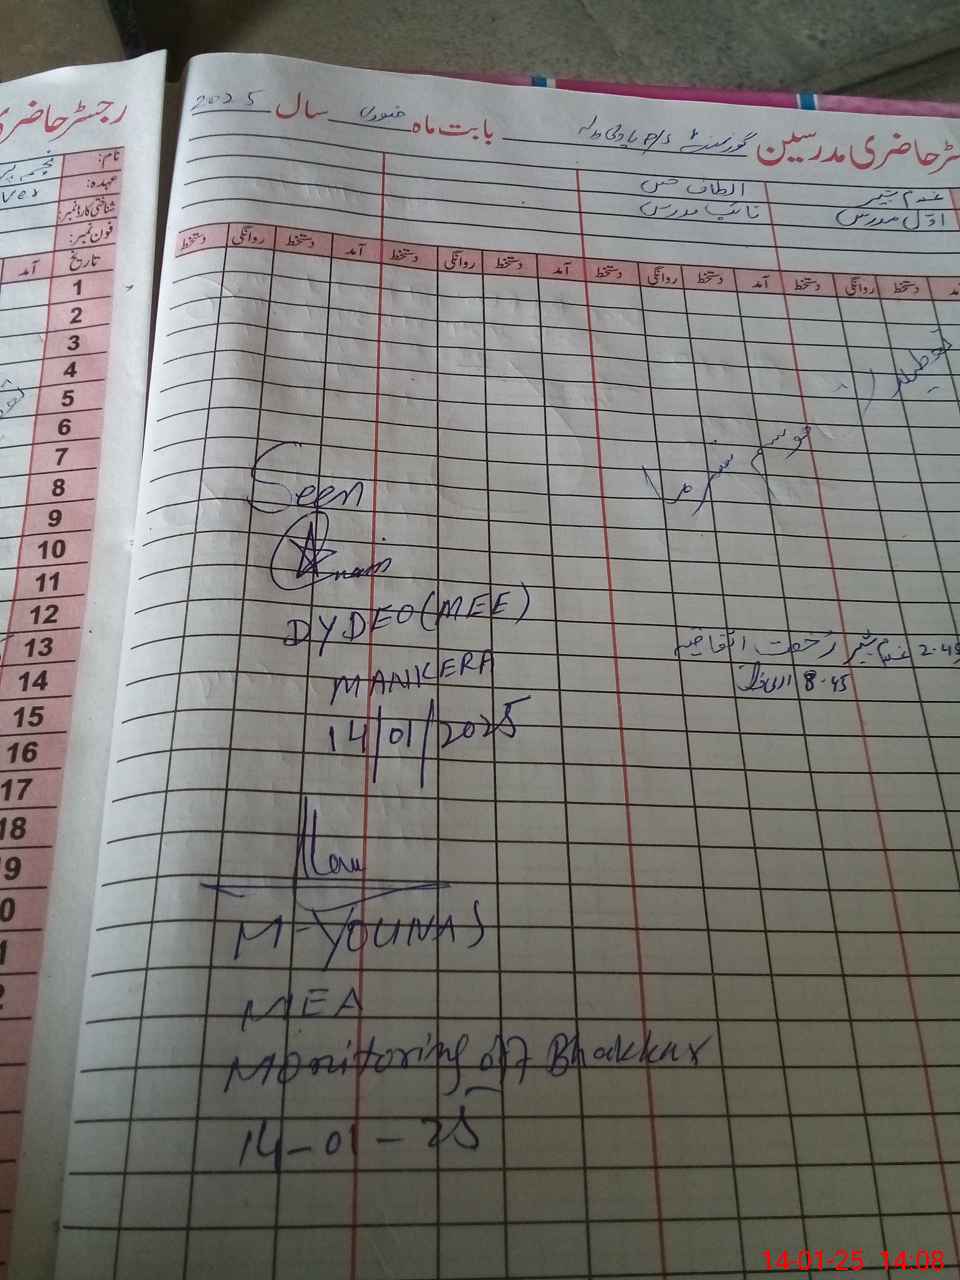 رجسٹر حاضری
نام:
عہدہ:
شناختی کارڈ نمبر:
فون نمبر:
تاریخ
آمد
1
2
3
4
5
6
7
8
9
10
11
12
13
14
15
16
17
18
حاضری مدرسین گورنمنٹ P/S بابت ماہ جنوری سال 2025
الطاف
نائب مدرس
اول مدرس
دستخط آمد دستخط روانگی دستخط آمد دستخط روانگی دستخط آمد دستخط روانگی دستخط
تعطیلات
موسم سرما
2-45 رخصت اتفاقیہ
8-45
Seen
DYDEO(MEE)
MANKERA
14/01/2025
M-YOUNAS
MEA
Monitoring off Bhakkar
14-01-25
14-01-25 14:08